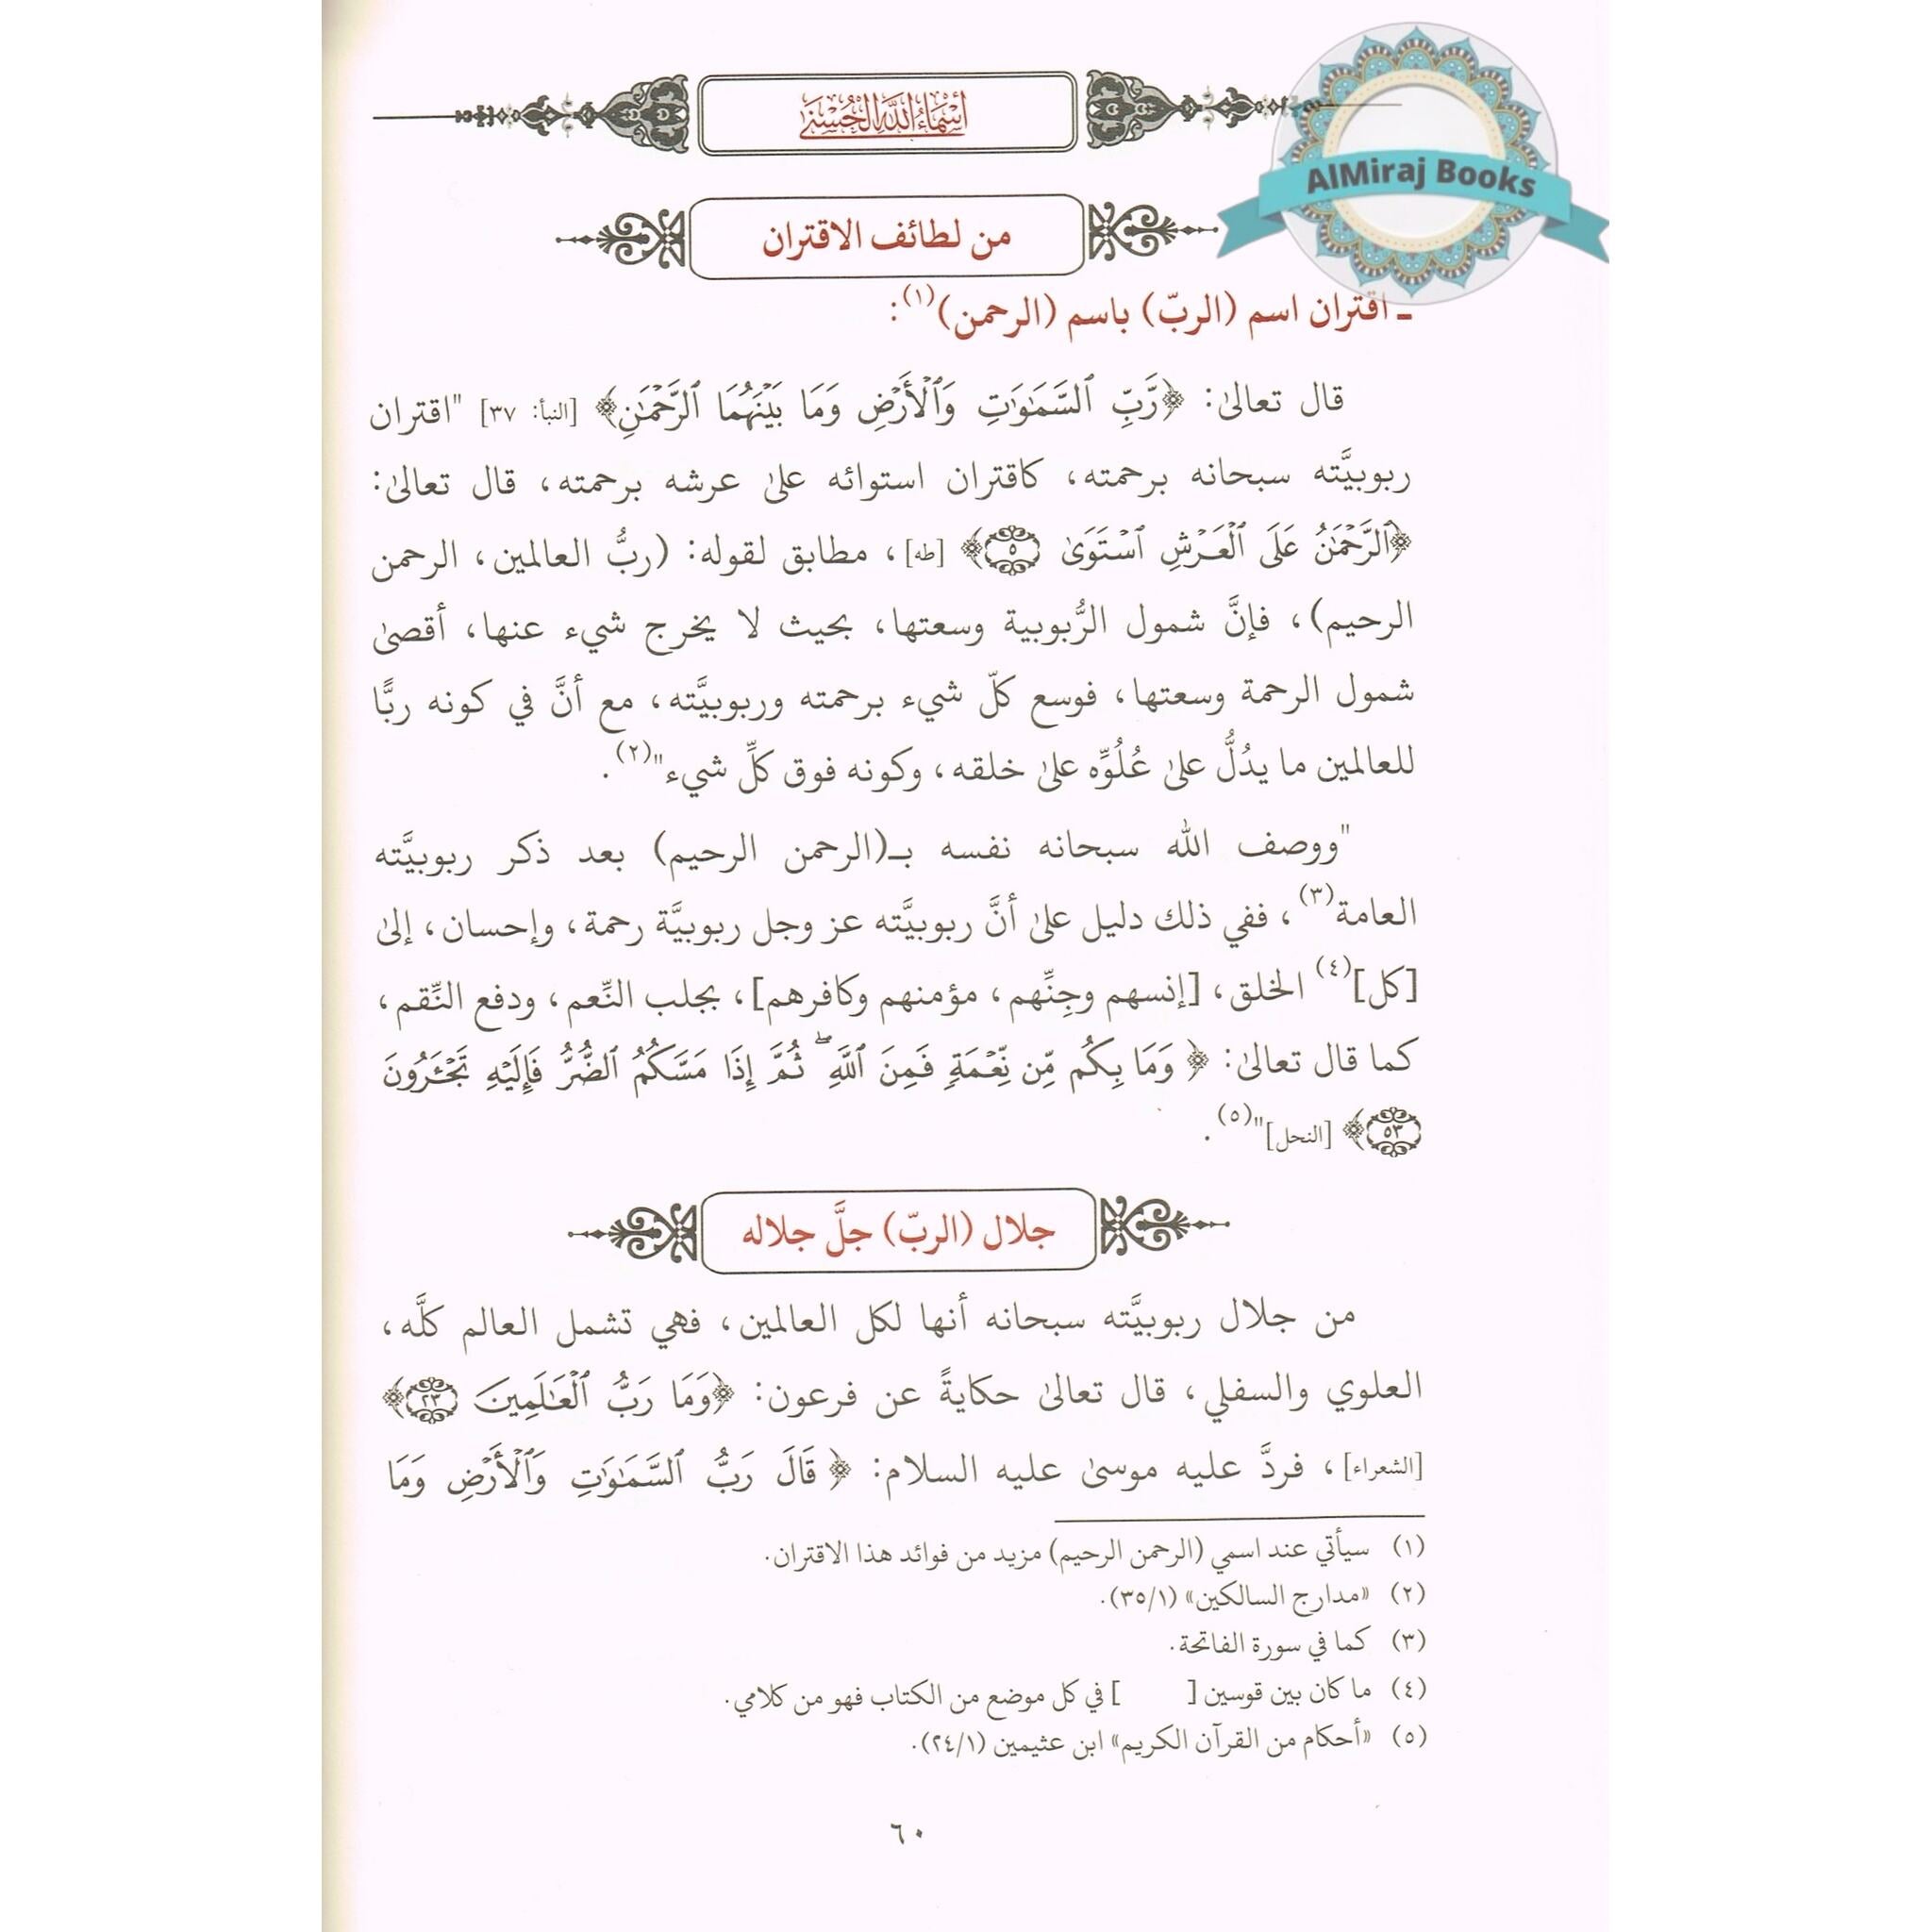 أسماء الله الحسنى
AlMiraj Books
من لطائف الاقتران
ـ اقتران اسم (الربّ) باسم (الرحمن)(١):
قال تعالىٰ: ﴿رَّبِّ ٱلسَّمَٰوَٰتِ وَٱلۡأَرۡضِ وَمَا بَيۡنَهُمَا ٱلرَّحۡمَٰنِ﴾ [النبأ: ٣٧] "اقتران
ربوبيَّته سبحانه برحمته، كاقتران استوائه علىٰ عرشه برحمته، قال تعالىٰ:
﴿ٱلرَّحۡمَٰنُ عَلَى ٱلۡعَرۡشِ ٱسۡتَوَىٰ ٥﴾ [طه]، مطابق لقوله: (ربُّ العالمين، الرحمن
الرحيم)، فإنَّ شمول الرُّبوبية وسعتها، بحيث لا يخرج شيء عنها، أقصىٰ
شمول الرحمة وسعتها، فوسع كلّ شيء برحمته وربوبيَّته، مع أنَّ في كونه ربًّا
للعالمين ما يدُلُّ علىٰ عُلُوِّه علىٰ خلقه، وكونه فوق كلِّ شيء"(٢).
"ووصف الله سبحانه نفسه بـ(الرحمن الرحيم) بعد ذكر ربوبيَّته
العامة(٣)، ففي ذلك دليل علىٰ أنَّ ربوبيَّته عز وجل ربوبيَّة رحمة، وإحسان، إلىٰ
[كل](٤) الخلق، [إنسهم وجِنِّهم، مؤمنهم وكافرهم]، بجلب النِّعم، ودفع النِّقم،
كما قال تعالىٰ: ﴿وَمَا بِكُم مِّن نِّعۡمَةٖ فَمِنَ ٱللَّهِۖ ثُمَّ إِذَا مَسَّكُمُ ٱلضُّرُّ فَإِلَيۡهِ تَجۡـَٔرُونَ
٥٣﴾ [النحل]"(٥).
جلال (الربّ) جلَّ جلاله
من جلال ربوبيَّته سبحانه أنها لكل العالمين، فهي تشمل العالم كلَّه،
العلوي والسفلي، قال تعالىٰ حكايةً عن فرعون: ﴿وَمَا رَبُّ ٱلۡعَٰلَمِينَ ٢٣﴾
[الشعراء]، فردَّ عليه موسىٰ عليه السلام: ﴿قَالَ رَبُّ ٱلسَّمَٰوَٰتِ وَٱلۡأَرۡضِ وَمَا
(١) سيأتي عند اسمي (الرحمن الرحيم) مزيد من فوائد هذا الاقتران.
(٢) «مدارج السالكين» (٣٥/١).
(٣) كما في سورة الفاتحة.
(٤) ما كان بين قوسين [ ] في كل موضع من الكتاب فهو من كلامي.
(٥) «أحكام من القرآن الكريم» ابن عثيمين (٢٤/١).
٦٠